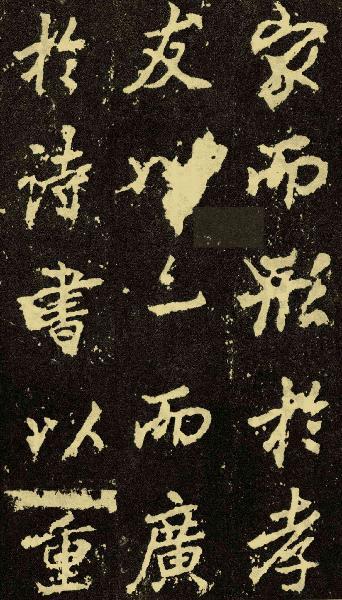 家而形於孝
友上而廣
於詩書以重